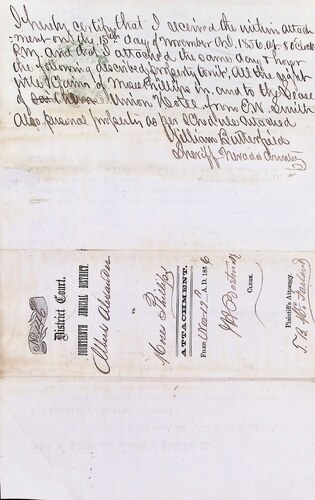 I hereby certify that I received the within attach
-ment on the 13th day of November A.D. 1856, 9 o'clock
P.M. and that I attached the same day & hour
the following described property to wit, All the right
title & claim of Moses Phillips in and to the Lease
of Union Hotel, from E.W. Smith
Also personal property as per Schedule attached
William Butterfield
Sheriff Nevada County
District Court.
FOURTEENTH JUDICIAL DISTRICT.
Albert Alexander
vs.
Moses Phillips
ATTACHMENT.
FILED A. D. 1856
CLERK.
Plaintiff's Attorney.